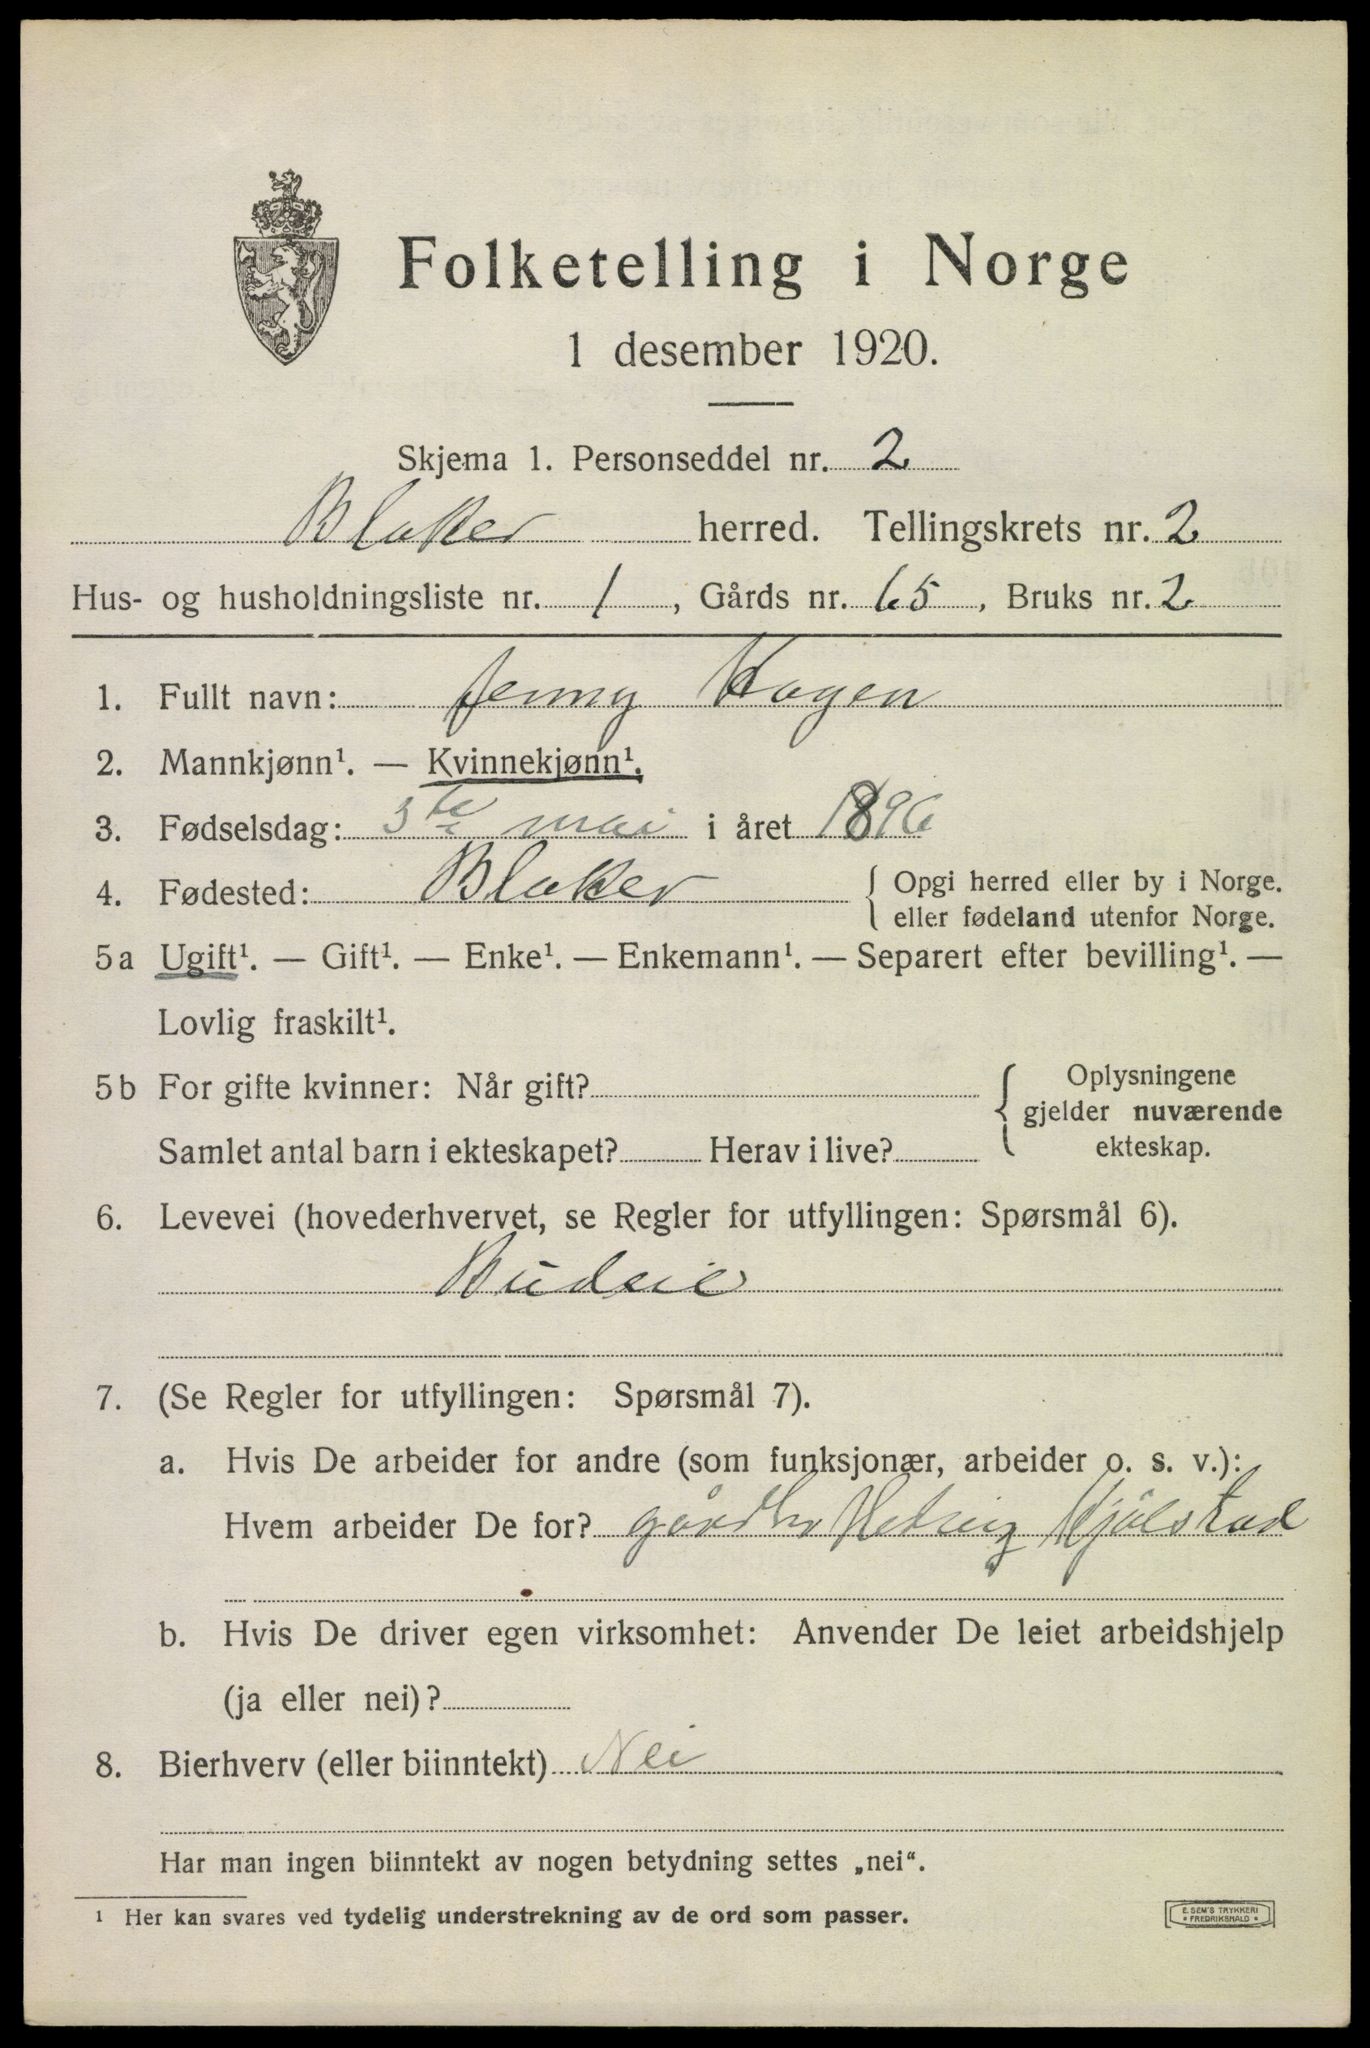 Folketelling i Norge
1 desember 1920.
Skjema 1. Personseddel nr. 2
Blaker herred. Tellingskrets nr. 2
Hus- og husholdningsliste nr. 1, Gårds nr. 65, Bruks nr. 2
1. Fullt navn: Jenny Hagen
2. Mannkjønn¹. — Kvinnekjønn¹.
3. Fødselsdag: 3te mai i året 1896
4. Fødested: Blaker { Opgi herred eller by i Norge.
eller fødeland utenfor Norge.
5a Ugift¹. — Gift¹. — Enke¹. — Enkemann¹. — Separert efter bevilling¹. —
Lovlig fraskilt¹.
5b For gifte kvinner: Når gift? { Oplysningene
gjelder nuværende
Samlet antal barn i ekteskapet? Herav i live? ekteskap.
6. Levevei (hovederhvervet, se Regler for utfyllingen: Spørsmål 6).
Budeie
7. (Se Regler for utfyllingen: Spørsmål 7).
a. Hvis De arbeider for andre (som funksjonær, arbeider o. s. v.):
Hvem arbeider De for? Kjølstad
b. Hvis De driver egen virksomhet: Anvender De leiet arbeidshjelp
(ja eller nei)?
8. Bierhverv (eller biinntekt) Nei
Har man ingen biinntekt av nogen betydning settes „nei“.
¹ Her kan svares ved tydelig understrekning av de ord som passer.
E. SEM'S TRYKKERI
* FREDRIKSHALD *